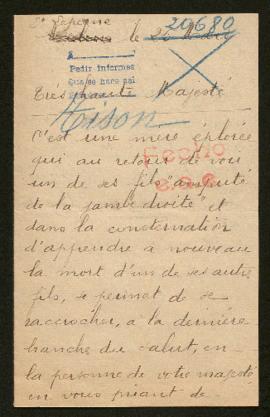 St Papoul
le
20680
Pedir informes
que se hace así
Très haute Majesté
Hison
C'est une mère éplorée
qui au retour de voir
un de ses fils "amputé
de la jambe droite" et
Hecho
dans la consternation
d'apprendre a nouveau
la mort d'un de ses autre
fils, se permet de se
raccrocher, a la dernière
branche du salut, en
la personne de votre majesté
en vous priant de